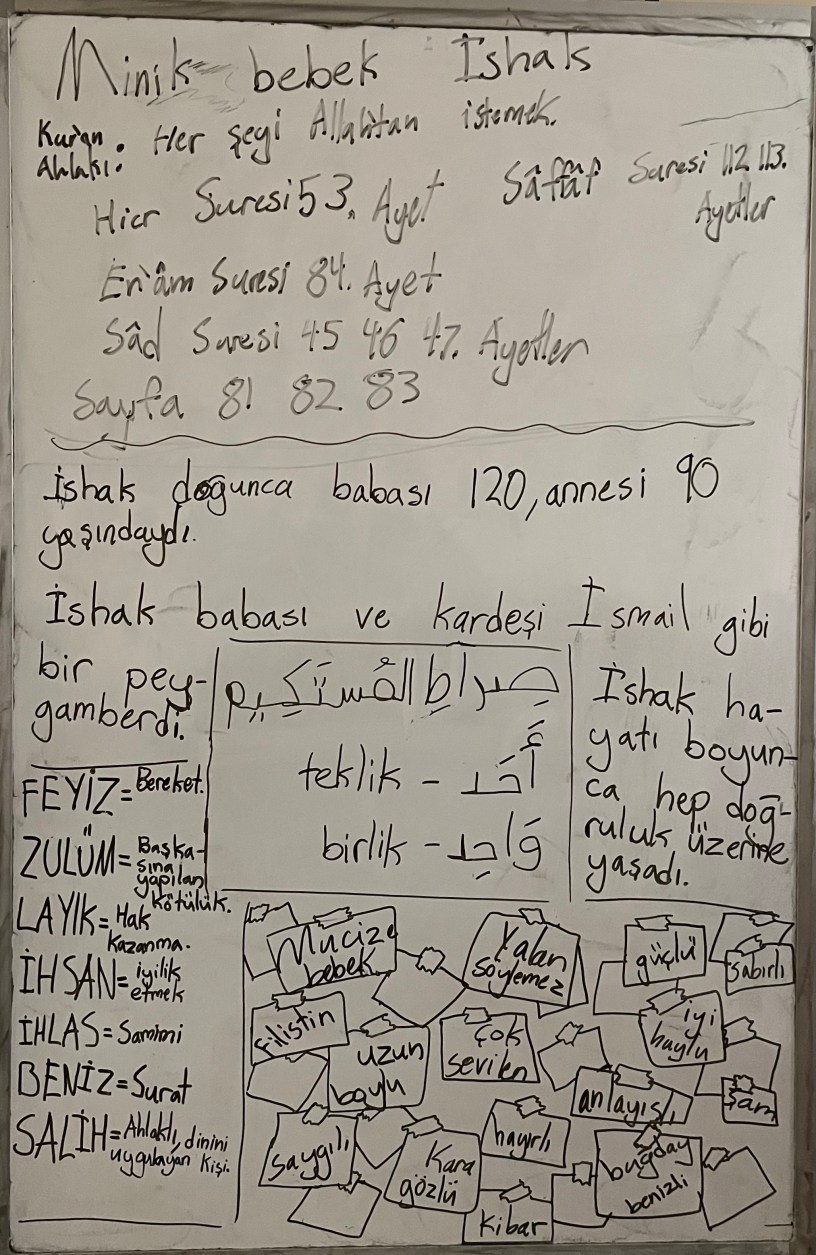 Minik bebek İshak
Kur'an Ahlakı: Her şeyi Allahtan istemek.
Hicr Suresi 53. Ayet
Sâffât Suresi 112 113. Ayetler
En'âm Suresi 84. Ayet
Sâd Suresi 45 46 47. Ayetler
Sayfa 81 82 83
İshak doğunca babası 120, annesi 90
yaşındaydı.
İshak babası ve kardeşi İsmail gibi
bir pey-
gamberdi.
صِراطِ المُستَكِيم
أَحَد - teklik
وَاحِد - birlik
İshak ha-
yatı boyun-
ca hep doğ-
ruluk üzerine
yaşadı.
FEYİZ = Bereket.
ZULÜM = Başka-
sına
yapılan
kötülük.
LAYIK = Hak
Kazanma.
İHSAN = iyilik
etmek
İHLAS = Samimi
BENİZ = Surat
SALİH = Ahlaklı, dinini
uygulayan kişi.
Mucize
bebek
Yalan
söylemez
güçlü
sabırlı
Filistin
uzun
boylu
çok
sevilen
iyi
huylu
anlayışlı
Şam
saygılı
Kara
gözlü
hayırlı
Kibar
buğday
benizli